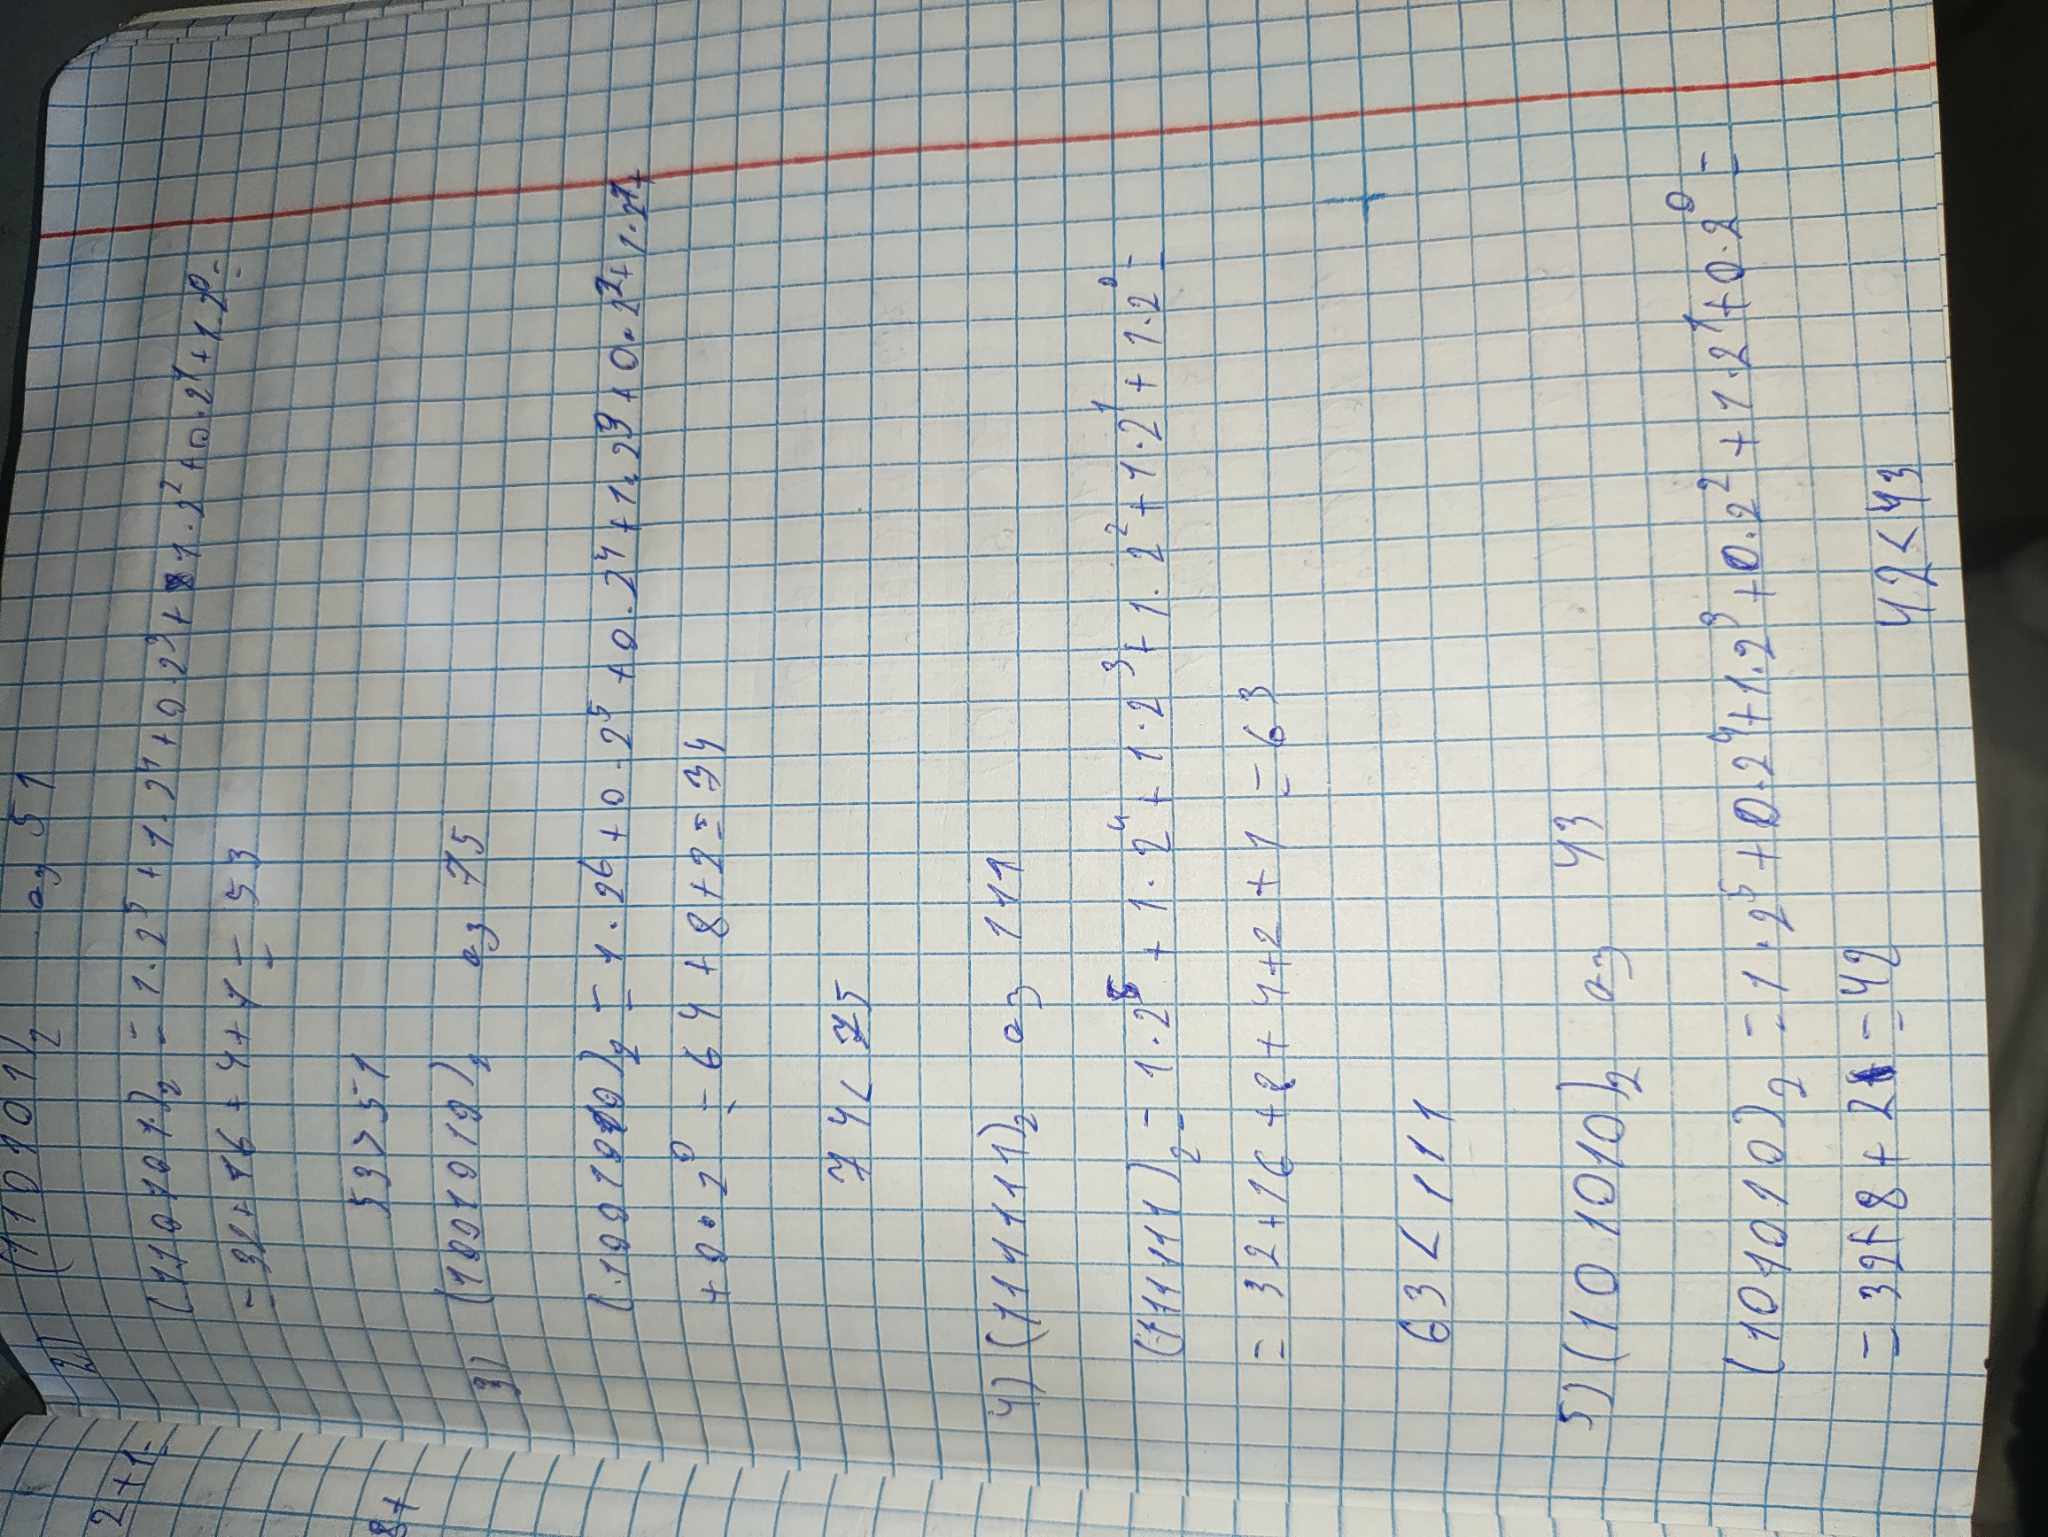 2) (110101)₂ аз 51
(110101)₂ = 1·2⁵ + 1·2⁴ + 0·2³ + 1·2² + 0·2¹ + 1·2⁰ =
= 32 + 16 + 4 + 1 = 53
53 > 51
3) (1001010)₂ аз 75
(1001010)₂ = 1·2⁶ + 0·2⁵ + 0·2⁴ + 1·2³ + 0·2² + 1·2¹ +
+ 0·2⁰ = 64 + 8 + 2 = 34
74 < 75
4) (111111)₂ аз 111
(11111)₂ = 1·2⁵ + 1·2⁴ + 1·2³ + 1·2² + 1·2¹ + 1·2⁰ =
= 32 + 16 + 8 + 4 + 2 + 1 = 63
63 < 111
5) (101010)₂ аз 43
(101010)₂ = 1·2⁵ + 0·2⁴ + 1·2³ + 0·2² + 1·2¹ + 0·2⁰ =
= 32 + 8 + 2 = 42
42 < 43
2 + 1 =
8 +